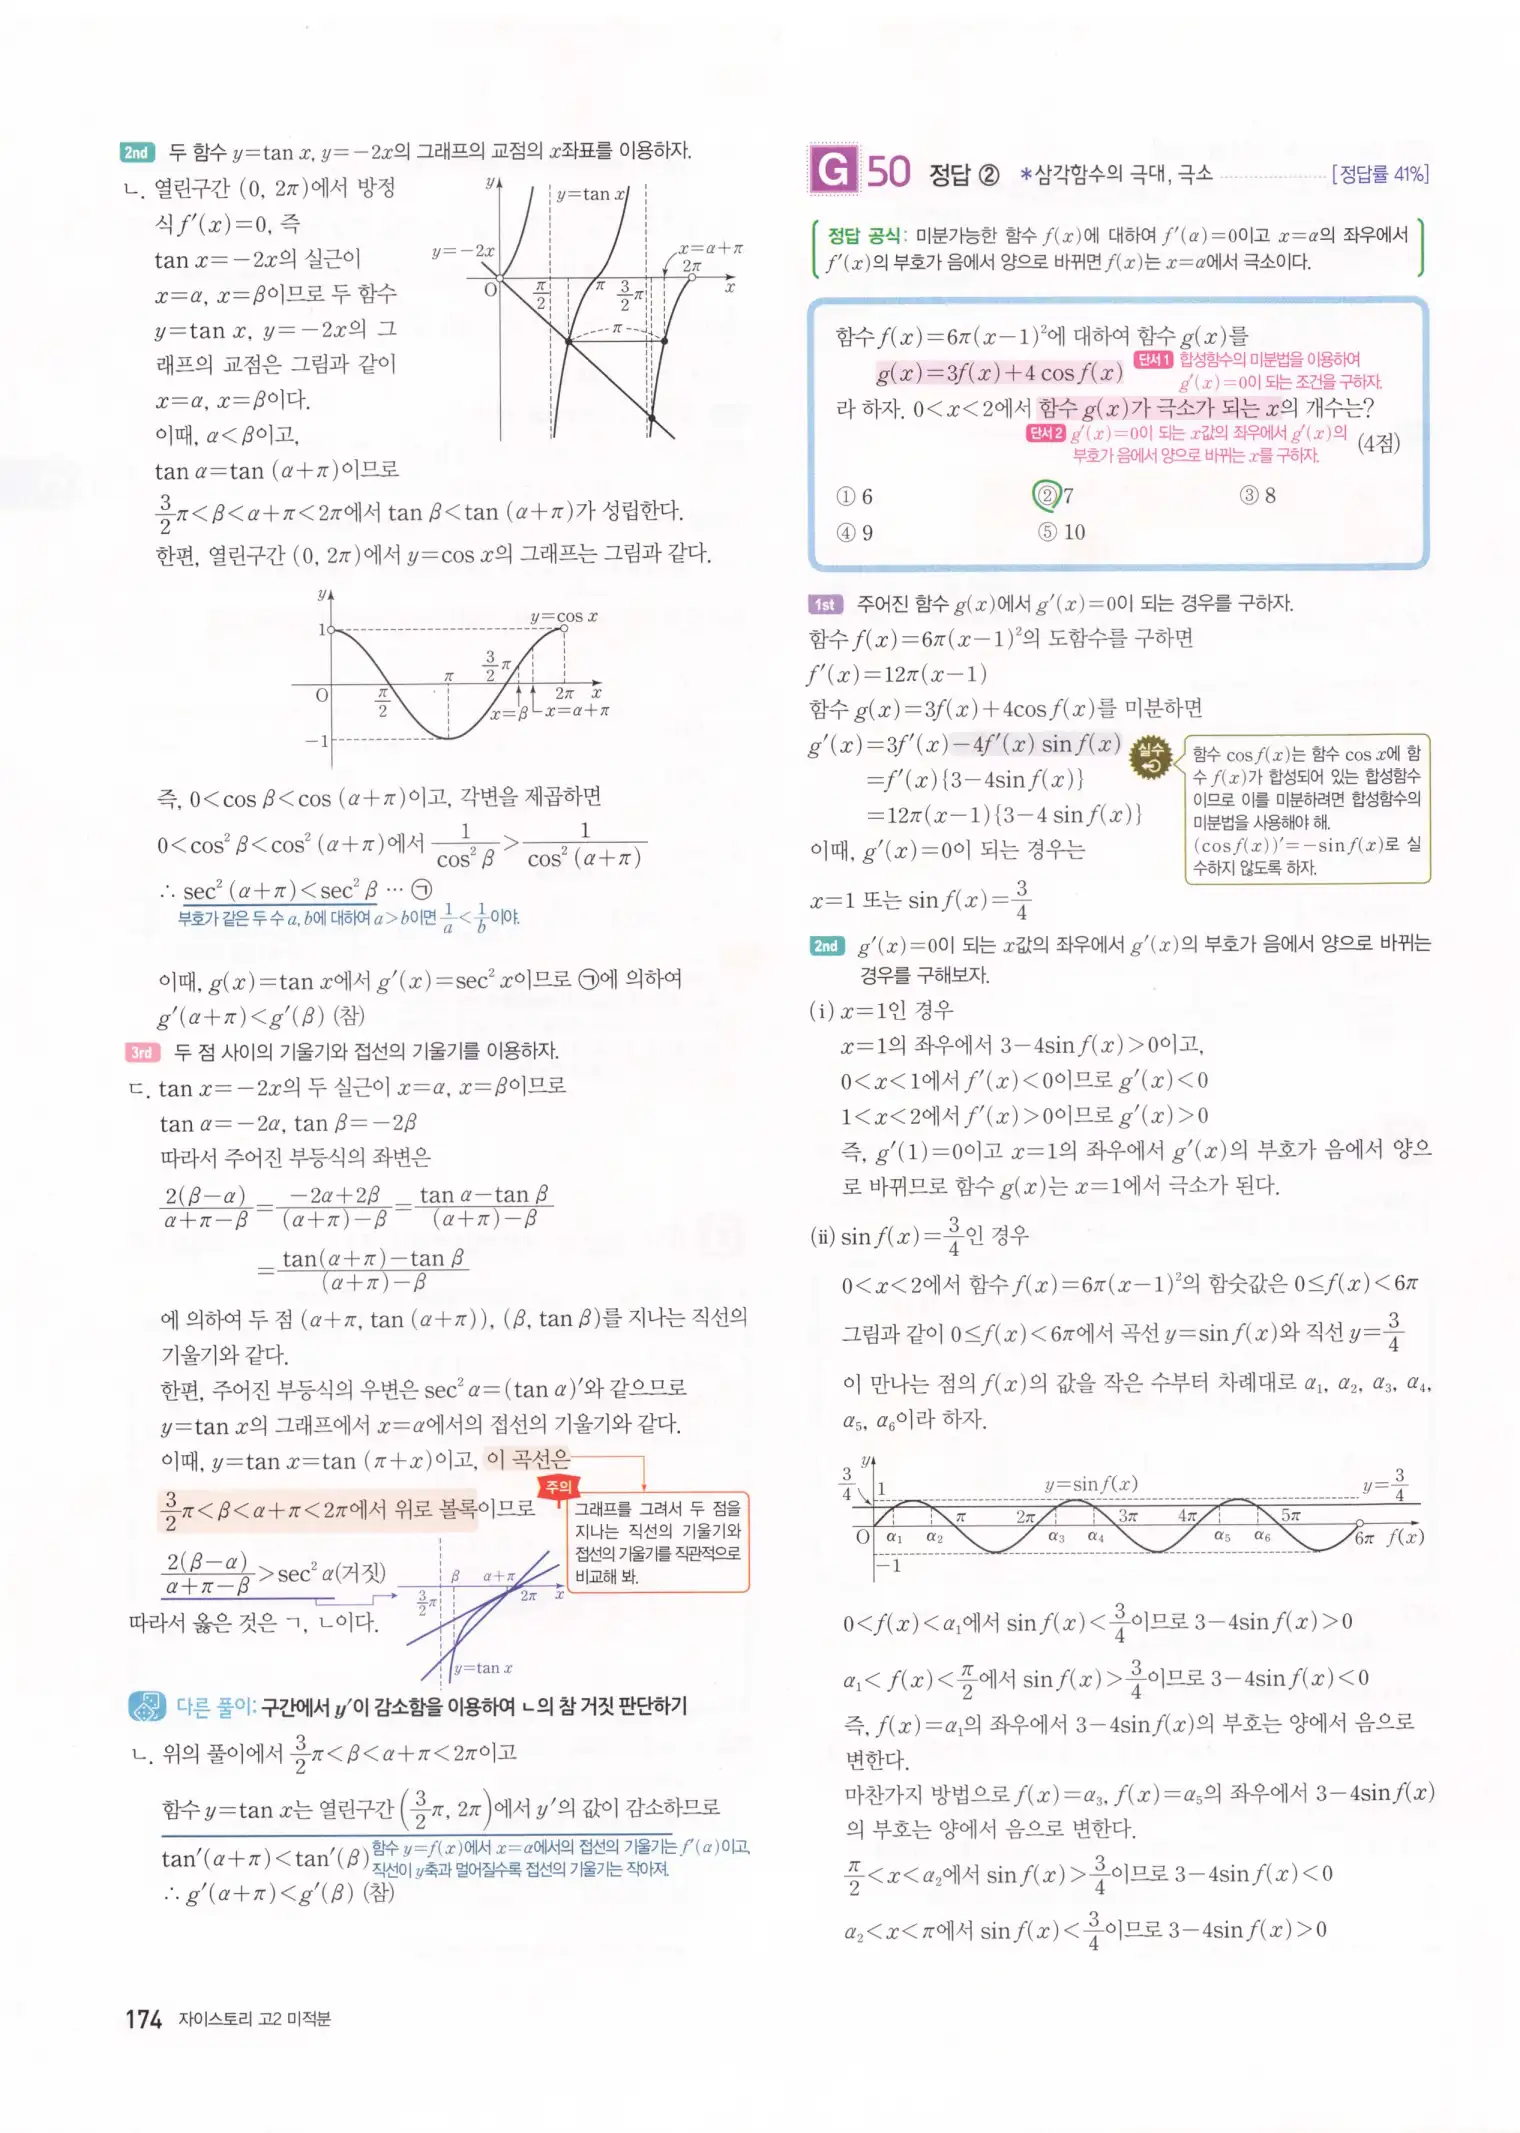 2nd 두 함수 y=tan x, y=-2x의 그래프의 교점의 x좌표를 이용하자.
ㄴ. 열린구간 (0, 2π)에서 방정
식 f′(x)=0, 즉
tan x=-2x의 실근이
x=α, x=β이므로 두 함수
y=tan x, y=-2x의 그
래프의 교점은 그림과 같이
x=α, x=β이다.
이때, α<β이고,
tan α=tan (α+π)이므로
y
y=tan x
y=-2x
x=α+π
2π
O
π/2
π
3/2π
x
π
3/2π<β<α+π<2π에서 tan β<tan (α+π)가 성립한다.
한편, 열린구간 (0, 2π)에서 y=cos x의 그래프는 그림과 같다.
y
y=cos x
1
O
π/2
π
3/2π
2π x
x=β
x=α+π
-1
즉, 0<cos β<cos (α+π)이고, 각변을 제곱하면
0<cos² β<cos² (α+π)에서 1/cos² β > 1/cos² (α+π)
∴ sec² (α+π)<sec² β … ㉠
부호가 같은 두 수 a, b에 대하여 a>b이면 1/a<1/b이야.
이때, g(x)=tan x에서 g′(x)=sec² x이므로 ㉠에 의하여
g′(α+π)<g′(β) (참)
3rd 두 점 사이의 기울기와 접선의 기울기를 이용하자.
ㄷ. tan x=-2x의 두 실근이 x=α, x=β이므로
tan α=-2α, tan β=-2β
따라서 주어진 부등식의 좌변은
2(β-α)/α+π-β = -2α+2β/(α+π)-β = tan α-tan β/(α+π)-β
= tan(α+π)-tan β/(α+π)-β
에 의하여 두 점 (α+π, tan (α+π)), (β, tan β)를 지나는 직선의
기울기와 같다.
한편, 주어진 부등식의 우변은 sec² α=(tan α)′와 같으므로
y=tan x의 그래프에서 x=α에서의 접선의 기울기와 같다.
이때, y=tan x=tan (π+x)이고, 이 곡선은
3/2π<β<α+π<2π에서 위로 볼록이므로
2(β-α)/α+π-β>sec² α(거짓)
따라서 옳은 것은 ㄱ, ㄴ이다.
주의
그래프를 그려서 두 점을
지나는 직선의 기울기와
접선의 기울기를 직관적으로
비교해 봐.
β
α+π
3/2π
2π
x
y=tan x
다른 풀이: 구간에서 y′이 감소함을 이용하여 ㄴ의 참 거짓 판단하기
ㄴ. 위의 풀이에서 3/2π<β<α+π<2π이고
함수 y=tan x는 열린구간 (3/2π, 2π)에서 y′의 값이 감소하므로
tan′(α+π)<tan′(β)
함수 y=f(x)에서 x=α에서의 접선의 기울기는 f′(α)이고,
직선이 y축과 멀어질수록 접선의 기울기는 작아져.
∴ g′(α+π)<g′(β) (참)
174 자이스토리 고2 미적분
G 50 정답 ② *삼각함수의 극대, 극소 [정답률 41%]
정답 공식: 미분가능한 함수 f(x)에 대하여 f′(α)=0이고 x=α의 좌우에서
f′(x)의 부호가 음에서 양으로 바뀌면 f(x)는 x=α에서 극소이다.
함수 f(x)=6π(x-1)²에 대하여 함수 g(x)를
g(x)=3f(x)+4 cos f(x) 단서1 합성함수의 미분법을 이용하여
g′(x)=0이 되는 조건을 구하자.
라 하자. 0<x<2에서 함수 g(x)가 극소가 되는 x의 개수는?
단서2 g′(x)=0이 되는 x값의 좌우에서 g′(x)의
부호가 음에서 양으로 바뀌는 x를 구하자. (4점)
① 6 ② 7 ③ 8
④ 9 ⑤ 10
1st 주어진 함수 g(x)에서 g′(x)=0이 되는 경우를 구하자.
함수 f(x)=6π(x-1)²의 도함수를 구하면
f′(x)=12π(x-1)
함수 g(x)=3f(x)+4cos f(x)를 미분하면
g′(x)=3f′(x)-4f′(x) sin f(x)
=f′(x){3-4sin f(x)}
=12π(x-1){3-4 sin f(x)}
이때, g′(x)=0이 되는 경우는
x=1 또는 sin f(x)=3/4
실수
함수 cos f(x)는 함수 cos x에 함
수 f(x)가 합성되어 있는 합성함수
이므로 이를 미분하려면 합성함수의
미분법을 사용해야 해.
(cos f(x))′=-sin f(x)로 실
수하지 않도록 하자.
2nd g′(x)=0이 되는 x값의 좌우에서 g′(x)의 부호가 음에서 양으로 바뀌는
경우를 구해보자.
(i) x=1인 경우
x=1의 좌우에서 3-4sin f(x)>0이고,
0<x<1에서 f′(x)<0이므로 g′(x)<0
1<x<2에서 f′(x)>0이므로 g′(x)>0
즉, g′(1)=0이고 x=1의 좌우에서 g′(x)의 부호가 음에서 양으
로 바뀌므로 함수 g(x)는 x=1에서 극소가 된다.
(ii) sin f(x)=3/4인 경우
0<x<2에서 함수 f(x)=6π(x-1)²의 함숫값은 0≤f(x)<6π
그림과 같이 0≤f(x)<6π에서 곡선 y=sin f(x)와 직선 y=3/4
이 만나는 점의 f(x)의 값을 작은 수부터 차례대로 α₁, α₂, α₃, α₄,
α₅, α₆이라 하자.
y
3/4
1
y=sin f(x)
y=3/4
O α₁ α₂ π 2π α₃ α₄ 3π 4π α₅ α₆ 5π 6π f(x)
-1
0<f(x)<α₁에서 sin f(x)<3/4이므로 3-4sin f(x)>0
α₁< f(x)<π/2에서 sin f(x)>3/4이므로 3-4sin f(x)<0
즉, f(x)=α₁의 좌우에서 3-4sin f(x)의 부호는 양에서 음으로
변한다.
마찬가지 방법으로 f(x)=α₃, f(x)=α₅의 좌우에서 3-4sin f(x)
의 부호는 양에서 음으로 변한다.
π/2<x<α₂에서 sin f(x)>3/4이므로 3-4sin f(x)<0
α₂<x<π에서 sin f(x)<3/4이므로 3-4sin f(x)>0